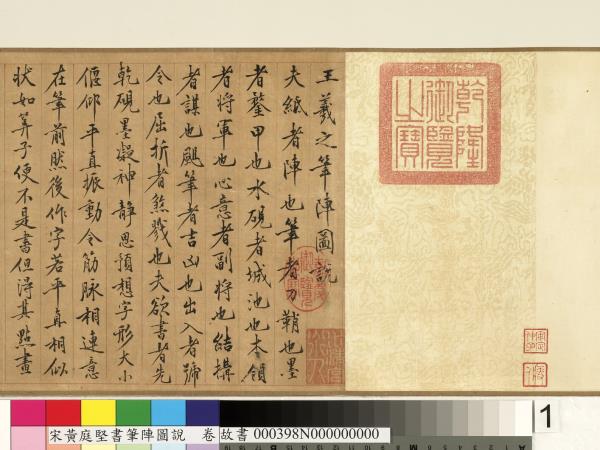 乾隆御覽之寶
王羲之筆陣圖說
夫紙者陣也筆者刀鞘也墨
者鍪甲也水硯者城池也本領
者將軍也心意者副將也結構
者謀也颺筆者吉凶也出入者號
令也屈折者煞戮也夫欲書者先
乾硯墨凝神靜思預想字形大小
偃仰平直振動令筋脉相連意
在筆前然後作字若平真相似
狀如筭子便不是書但淂其點畫
宋黃庭堅書筆陣圖說 卷 故書 000398N000000000
1